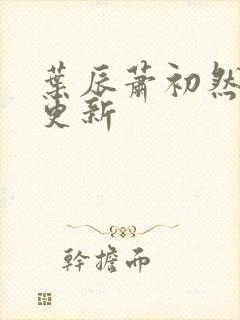 葉辰蕭初然
更新
幹擔而